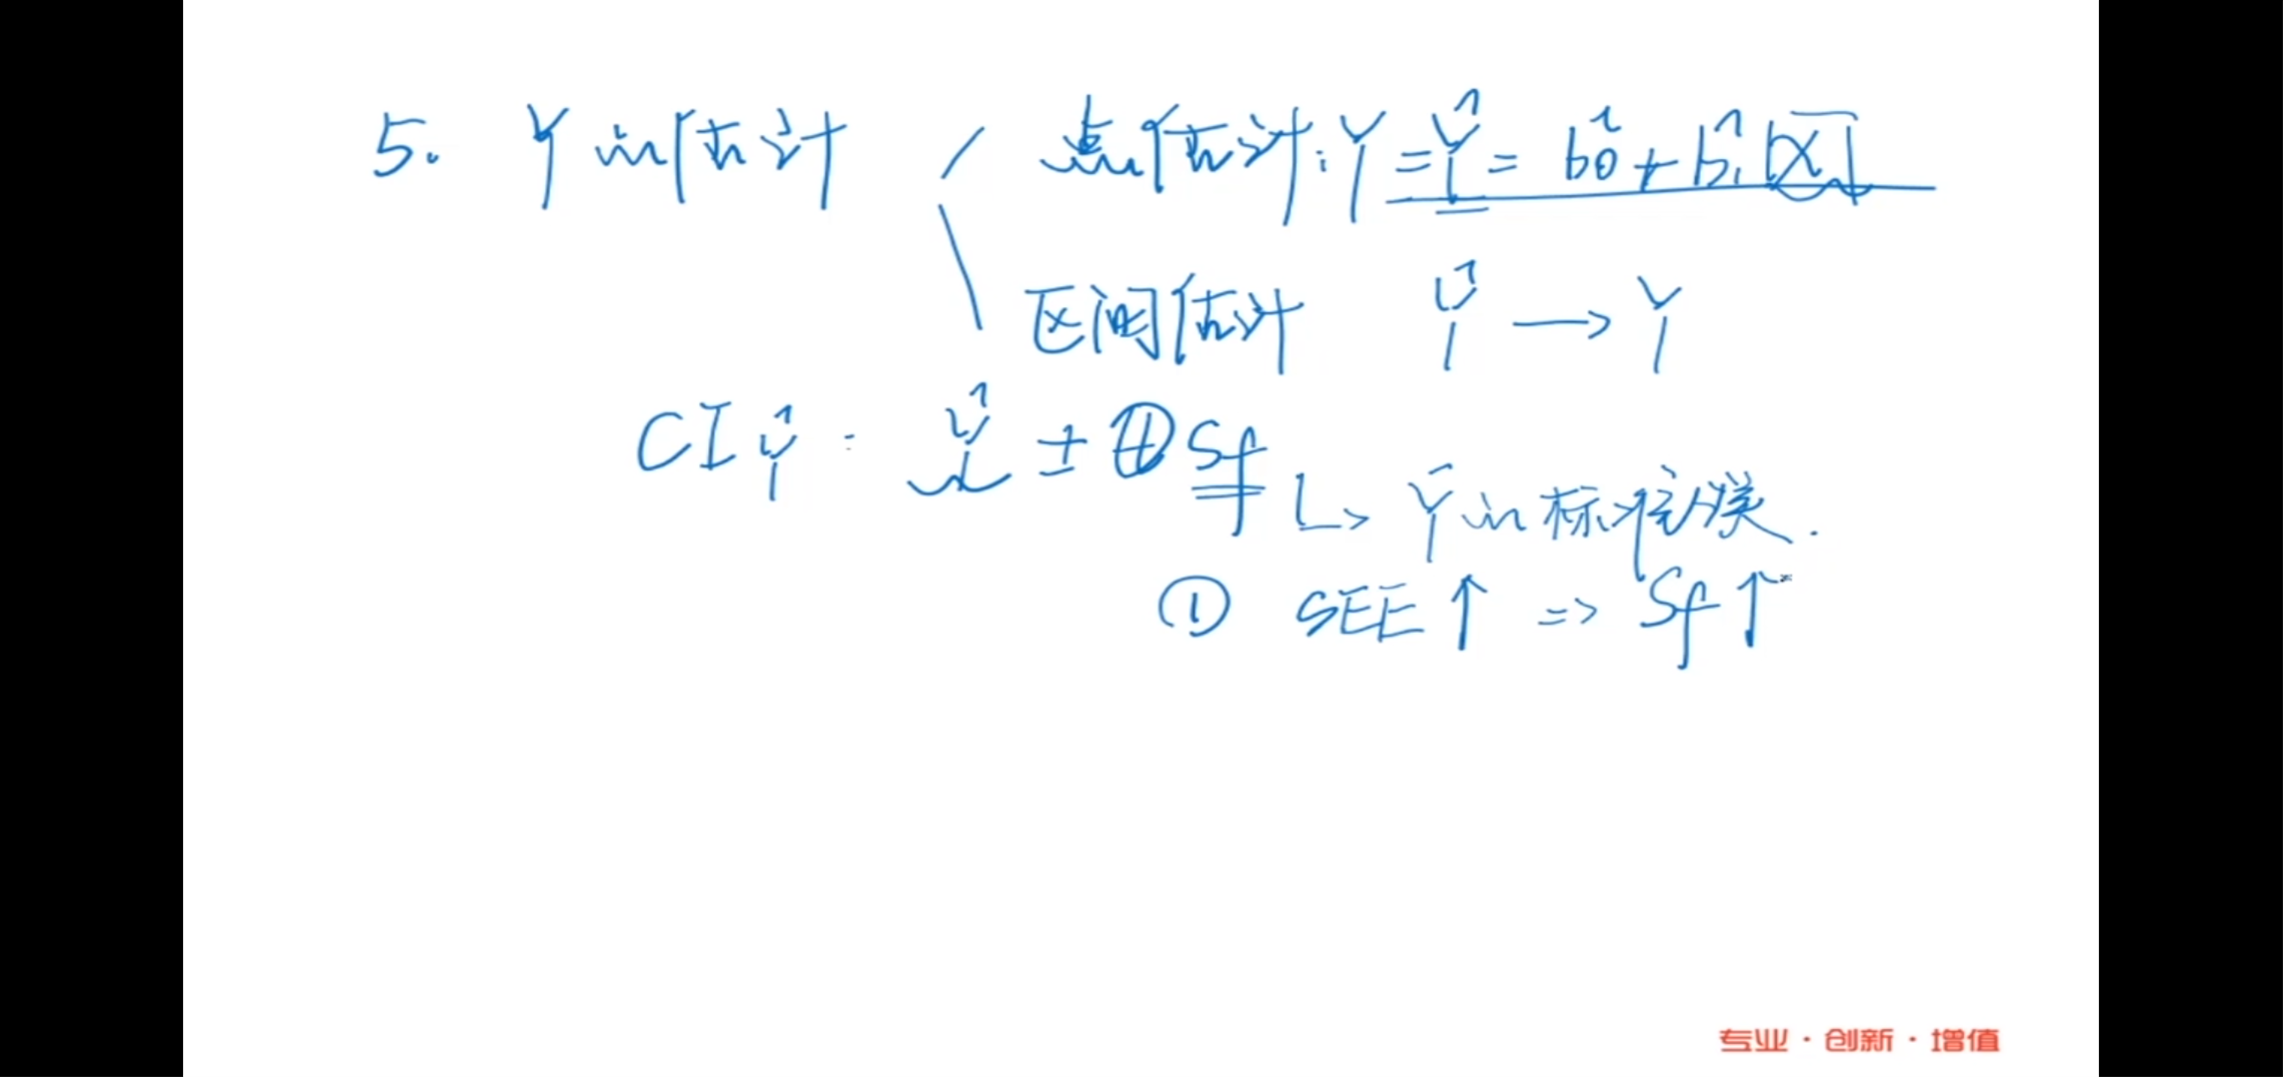 5. Y的估计 点估计: Y = Ŷ = b̂0 + b̂1 [X]
区间估计 Ŷ → Y
CI Ŷ : Ŷ ± t Sf
↳ Ŷ的标准误.
① SEE↑ => Sf↑
专业·创新·增值